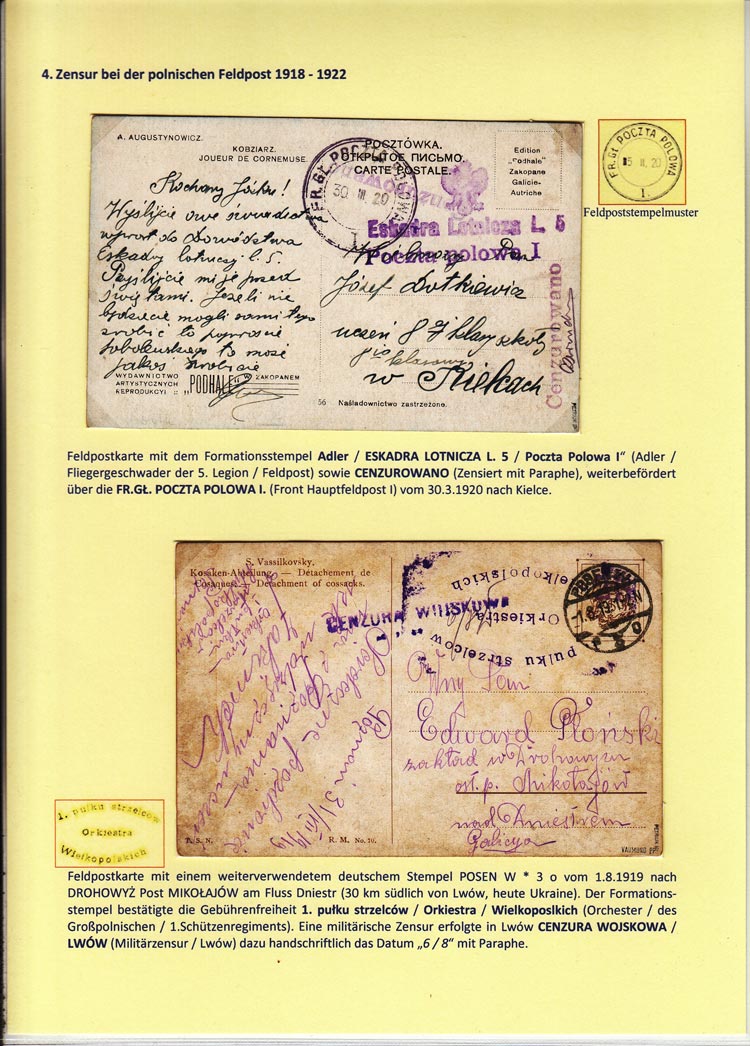 4. Zensur bei der polnischen Feldpost 1918 - 1922
A. AUGUSTYNOWICZ.
KOBZIARZ.
JOUEUR DE CORNEMUSE.
POCZTÓWKA.
ОТКРЫТОЕ ПИСЬМО.
CARTE POSTALE.
Edition
„Podhale"
Zakopane
Galicie-
Autriche
FR. GŁ. POCZTA POLOWA
30 III. 20
I
Eskadra Lotnicza L. 5
Poczta polowa I
Cenzurowano
Kochany Józku!
Wyślijcie owe świadectwa
wprost do Dowództwa
Eskadry lotniczej l. 5.
Przyślijcie mi je przed
świętami. Jeżeli nie
będziecie mogli sami tego
zrobić to poproście
Sobolewskiego to może
jakoś zrobicie
Wielmożny Pan
Józef Dutkiewicz
uczeń 8 kl
w Kielcach
WYDAWNICTWO
ARTYSTYCZNYCH
REPRODUKCYI
„PODHALE" W ZAKOPANEM
56 Naśladownictwo zastrzeżone.
FR. GŁ. POCZTA POLOWA
15 II. 20
1.
Feldpoststempelmuster
Feldpostkarte mit dem Formationsstempel Adler / ESKADRA LOTNICZA L. 5 / Poczta Polowa I“ (Adler /
Fliegergeschwader der 5. Legion / Feldpost) sowie CENZUROWANO (Zensiert mit Paraphe), weiterbefördert
über die FR.GŁ. POCZTA POLOWA I. (Front Hauptfeldpost I) vom 30.3.1920 nach Kielce.
S. Vassilkovsky.
Kosaken-Abteilung. — Détachement de
Cosaques. — Detachment of cossacks.
CENZURA WOJSKOWA
pułku strzelcow
Orkiestra
Wielkopolskich
POSEN
-1.8.19
Poznań 31/VII 19
Serdeczne pozdrowienia
WPny Pan
Edward Płoński
zakład w Drohowyżu
ost. p. Mikołajów
nad Dniestrem
Galicya
T. S. N.
R. M. No. 70.
1. pułku strzelcow
Orkiestra
Wielkopolskich
Feldpostkarte mit einem weiterverwendetem deutschem Stempel POSEN W * 3 o vom 1.8.1919 nach
DROHOWYŻ Post MIKOŁAJÓW am Fluss Dniestr (30 km südlich von Lwów, heute Ukraine). Der Formations-
stempel bestätigte die Gebührenfreiheit 1. pułku strzelców / Orkiestra / Wielkoposlkich (Orchester / des
Großpolnischen / 1.Schützenregiments). Eine militärische Zensur erfolgte in Lwów CENZURA WOJSKOWA /
LWÓW (Militärzensur / Lwów) dazu handschriftlich das Datum „6 / 8“ mit Paraphe.